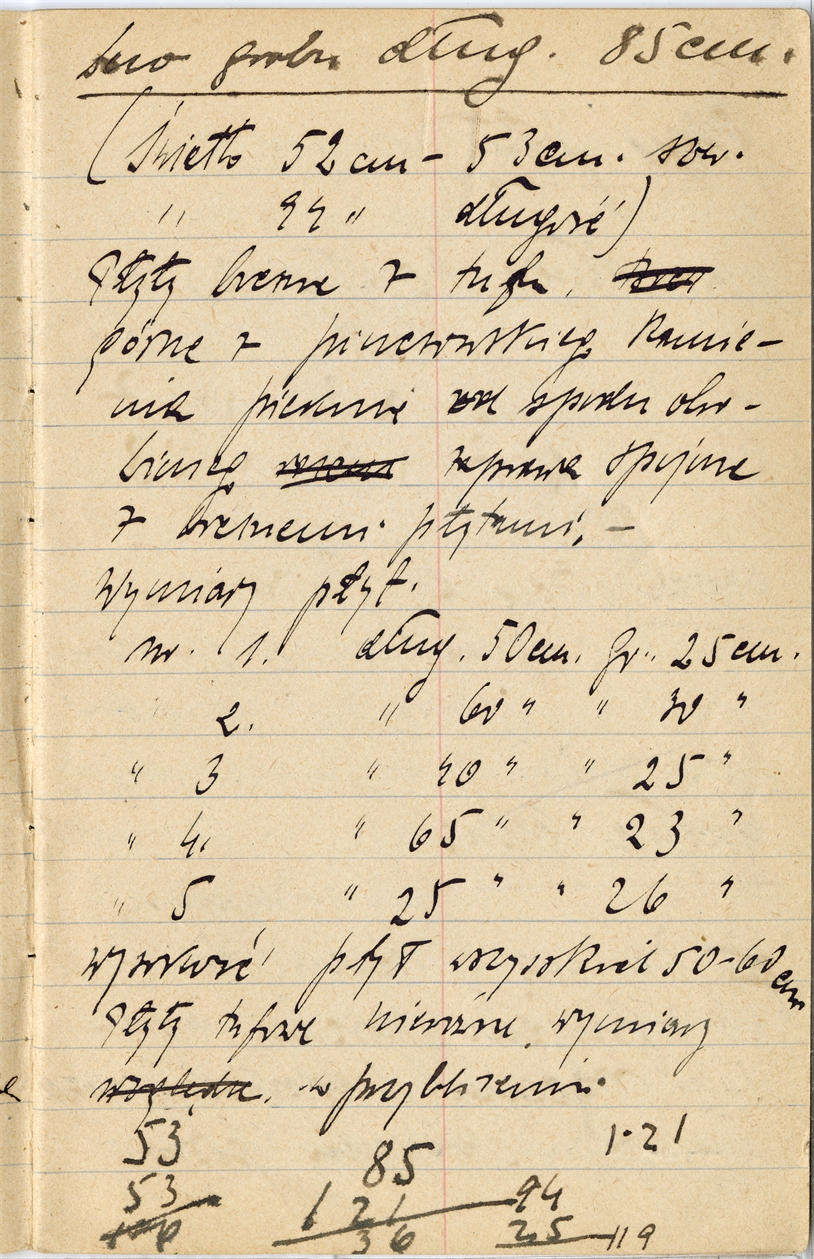 dno grobu dług. 85 cm.
(Światło 52 cm - 53 cm. szer.
" 94 " długość)
Płyty boczne z tufu,
górne z pinczowskiego kamie-
nia pięknie od spodu obro-
bionego zaprawą spojone
z bocznemi płytami, -
wymiary płyt.
nr. 1. dług. 50 cm. gr. 25 cm.
" 2. " 60 " " 30 "
" 3 " 40 " " 25 "
" 4. " 65 " " 23 "
" 5 " 25 " " 26 "
wysokość płyt wszystkich 50-60 cm
Płyty tufowe nierówne, wymiary
w przybliżeniu.
53 85 1·21
53 121 94
106 36 25 119